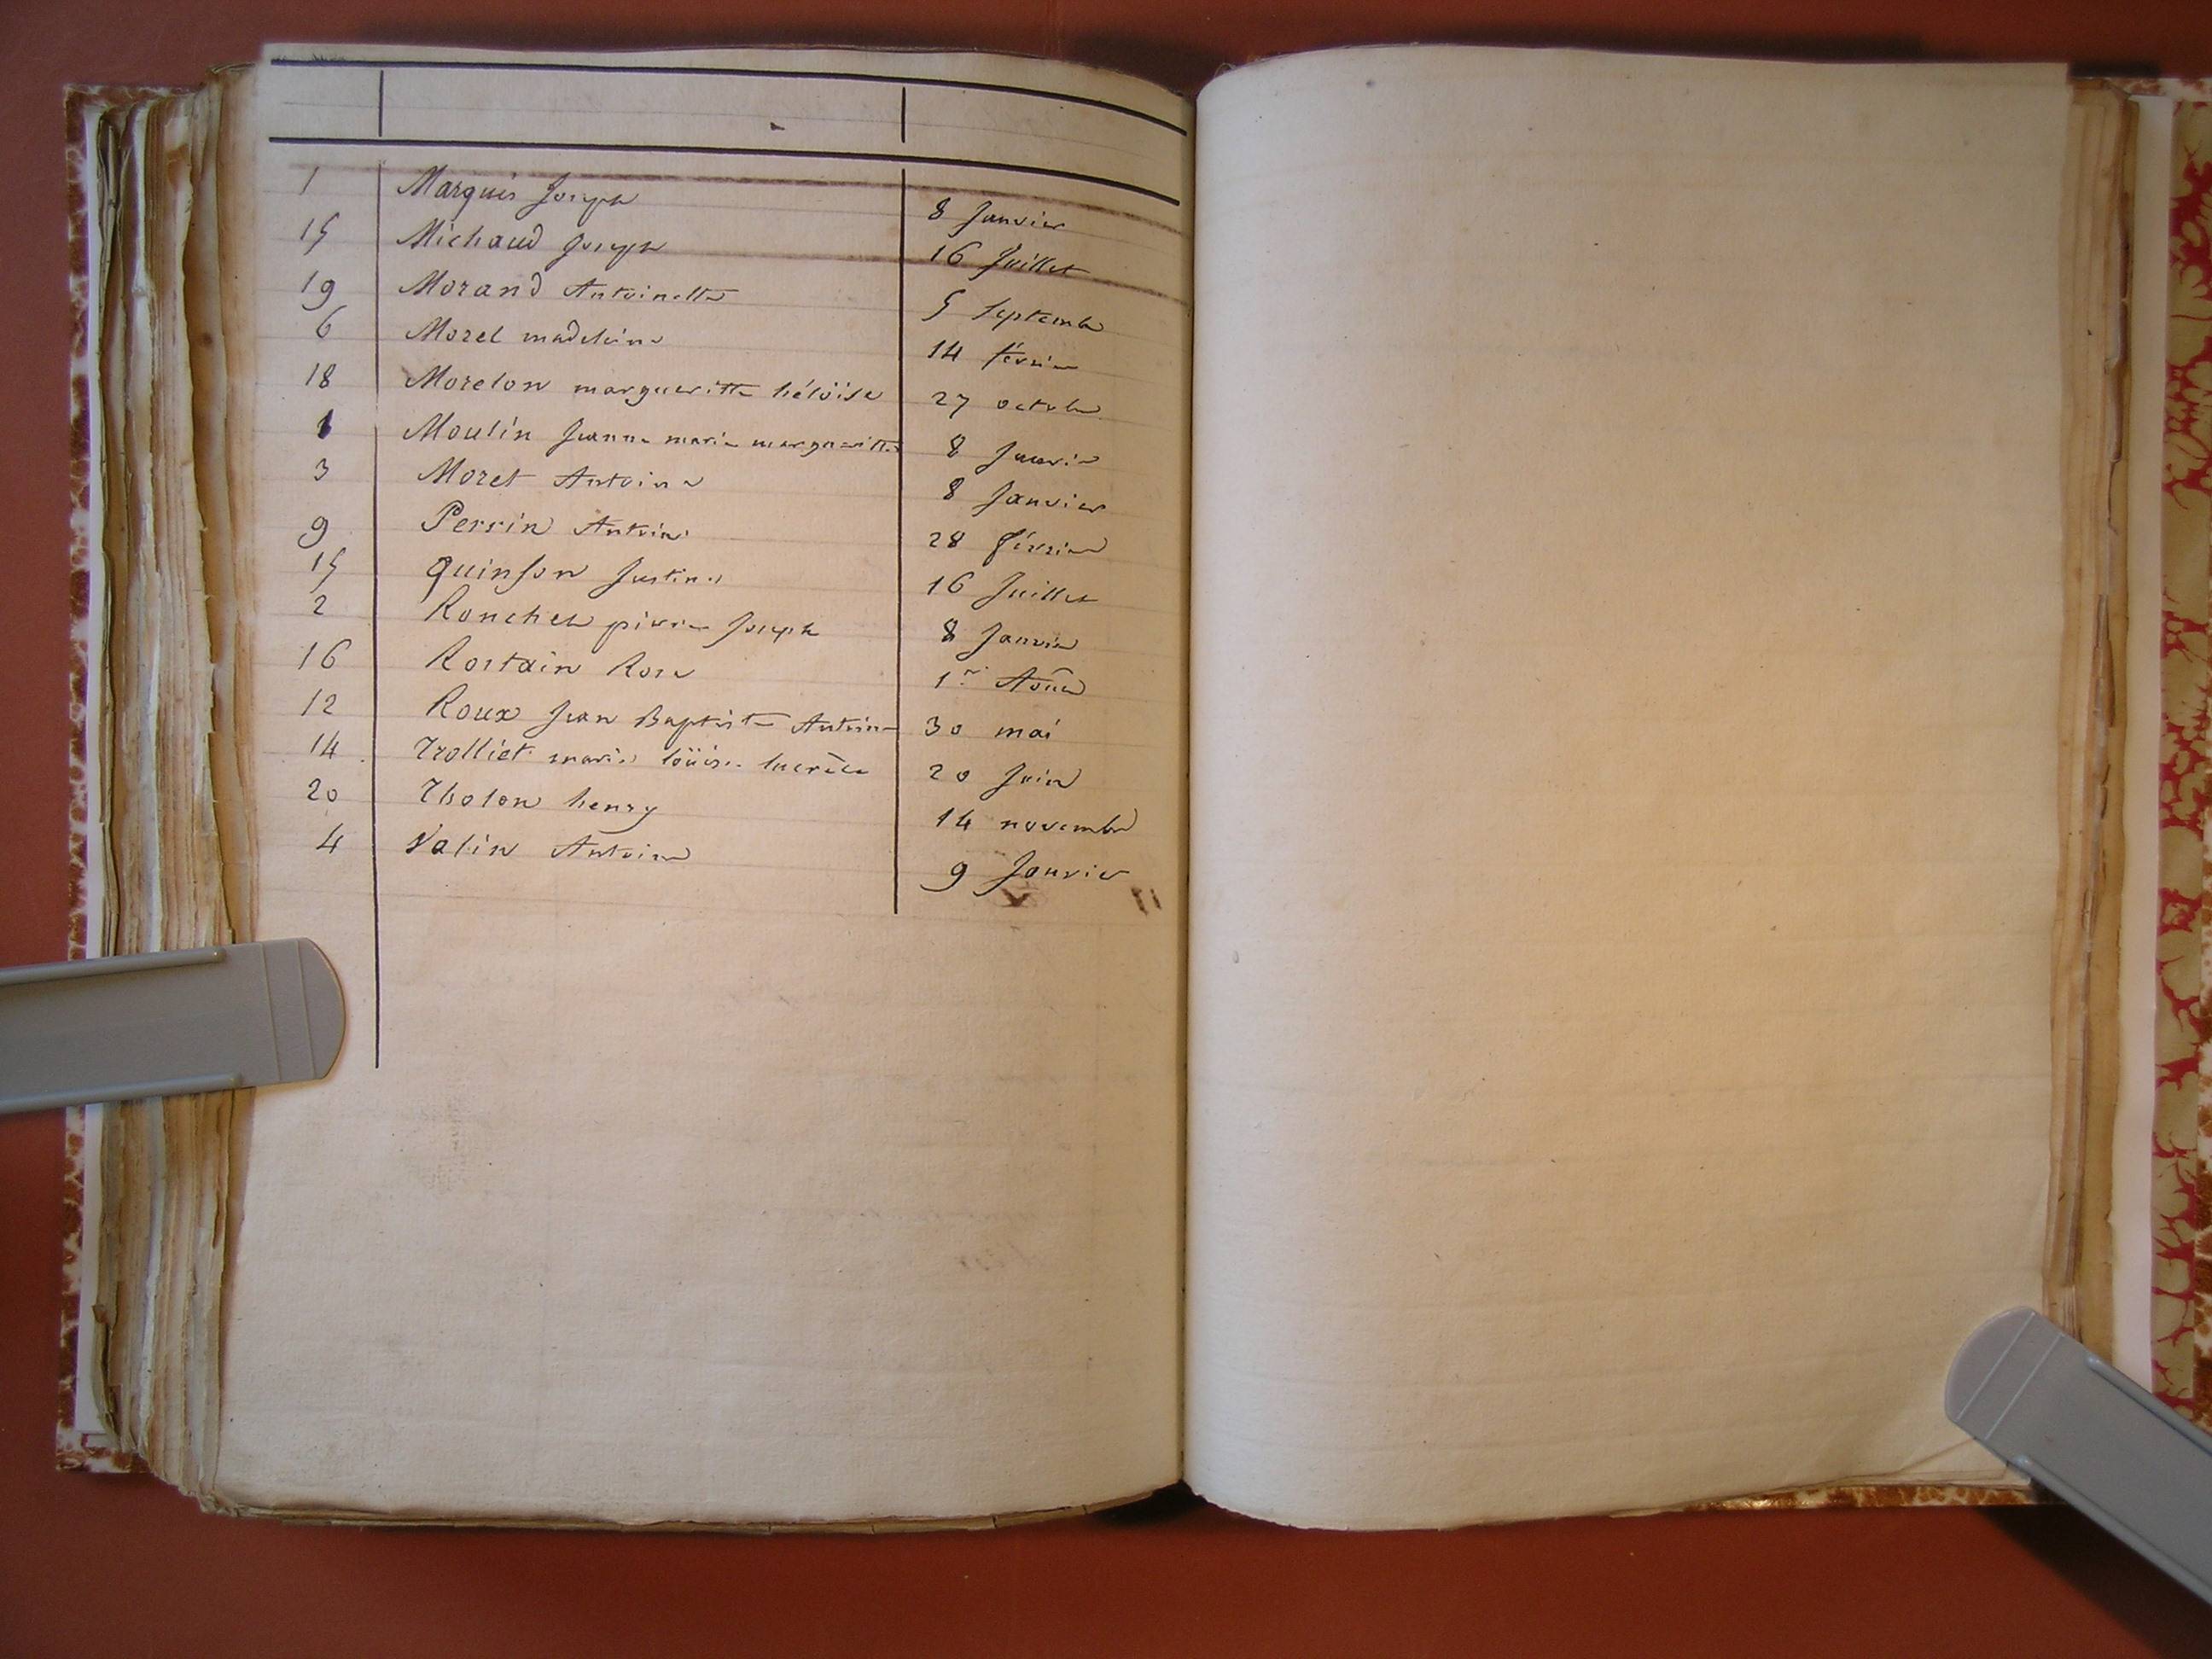 1 Marquis Joseph 8 Janvier
15 Michaud Joseph 16 Juillet
19 Morand Antoinette 5 Septembre
6 Morel madeleine 14 février
18 Morelon margueritte héloïse 27 octobre
1 Moulin Jeanne marie margueritte 8 Janvier
3 Moret Antoine 8 Janvier
9 Perrin Antoine 28 février
15 Quinson Justine 16 Juillet
2 Ronchet pierre Joseph 8 Janvier
16 Rostain Rose 1er Août
12 Roux Jean Baptiste Antoine 30 mai
14 Trolliet marie loüise lucrèce 20 Juin
20 Tholon henry 14 novembre
4 Valin Antoine 9 Janvier